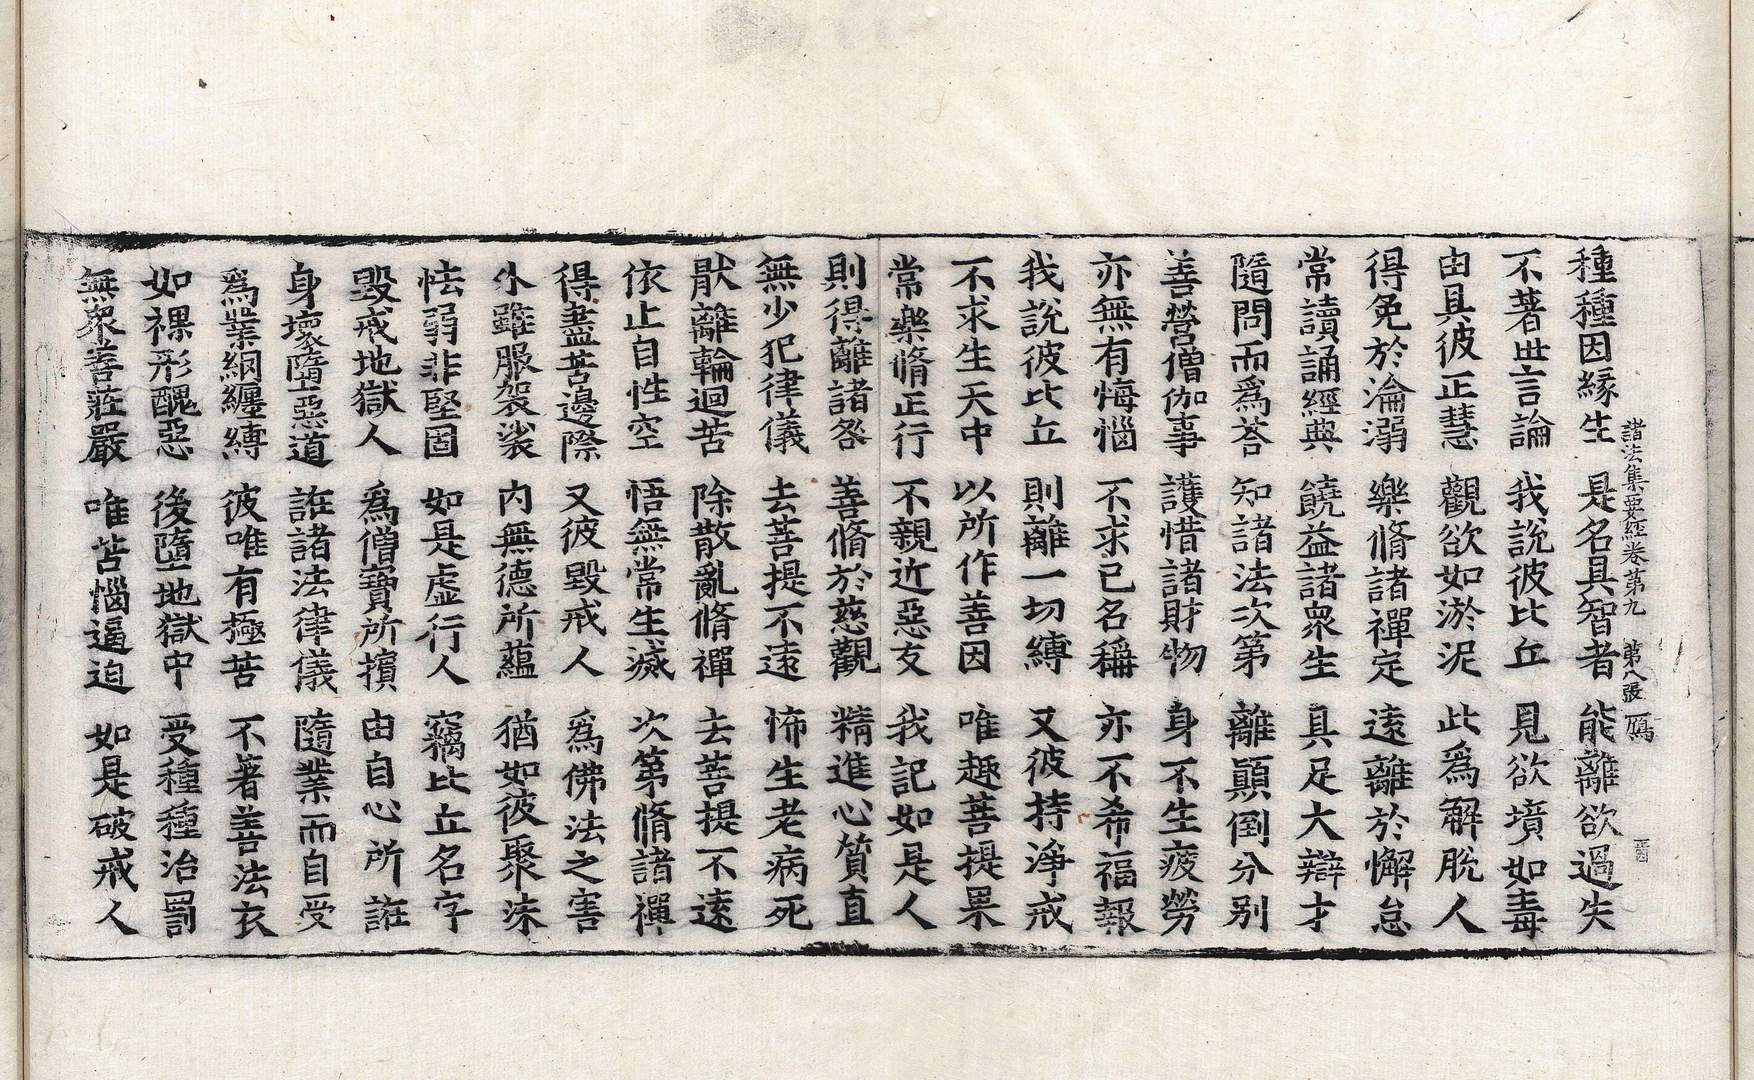 諸法集要經卷第九　第八張　鴈
種種因緣生　是名具智者　能離欲過失
不著世言論　我說彼比丘　見欲墳如毒
由具彼正慧　觀欲如淤泥　此爲解脫人
得免於淪溺　樂脩諸禪定　遠離於懈怠
常讀誦經典　饒益諸衆生　具足大辯才
隨問而爲荅　知諸法次第　離顚倒分别
善營僧伽事　護惜諸財物　身不生疲勞
亦無有悔惱　不求己名稱　亦不希福報
我說彼比丘　則離一切縛　又彼持淨戒
不求生天中　以所作善因　唯趣菩提果
常樂脩正行　不親近惡友　我記如是人
則得離諸咎　善脩於慈觀　精進心質直
無少犯律儀　去菩提不遠　怖生老病死
猒離輪迴苦　除散亂脩禪　去菩提不遠
依止自性空　悟無常生滅　次第脩諸禪
得盡苦邊際　又彼毀戒人　爲佛法之害
外雖服袈裟　内無德所蘊　猶如彼聚沫
怯弱非堅固　如是虛行人　竊比丘名字
毀戒地獄人　爲僧寶所擯　由自心所誑
身壞墮惡道　誑諸法律儀　隨業而自受
爲業網纏縛　彼唯有極苦　不著善法衣
如裸形醜惡　後墮地獄中　受種種治罰
無衆善莊嚴　唯苦惱逼迫　如是破戒人